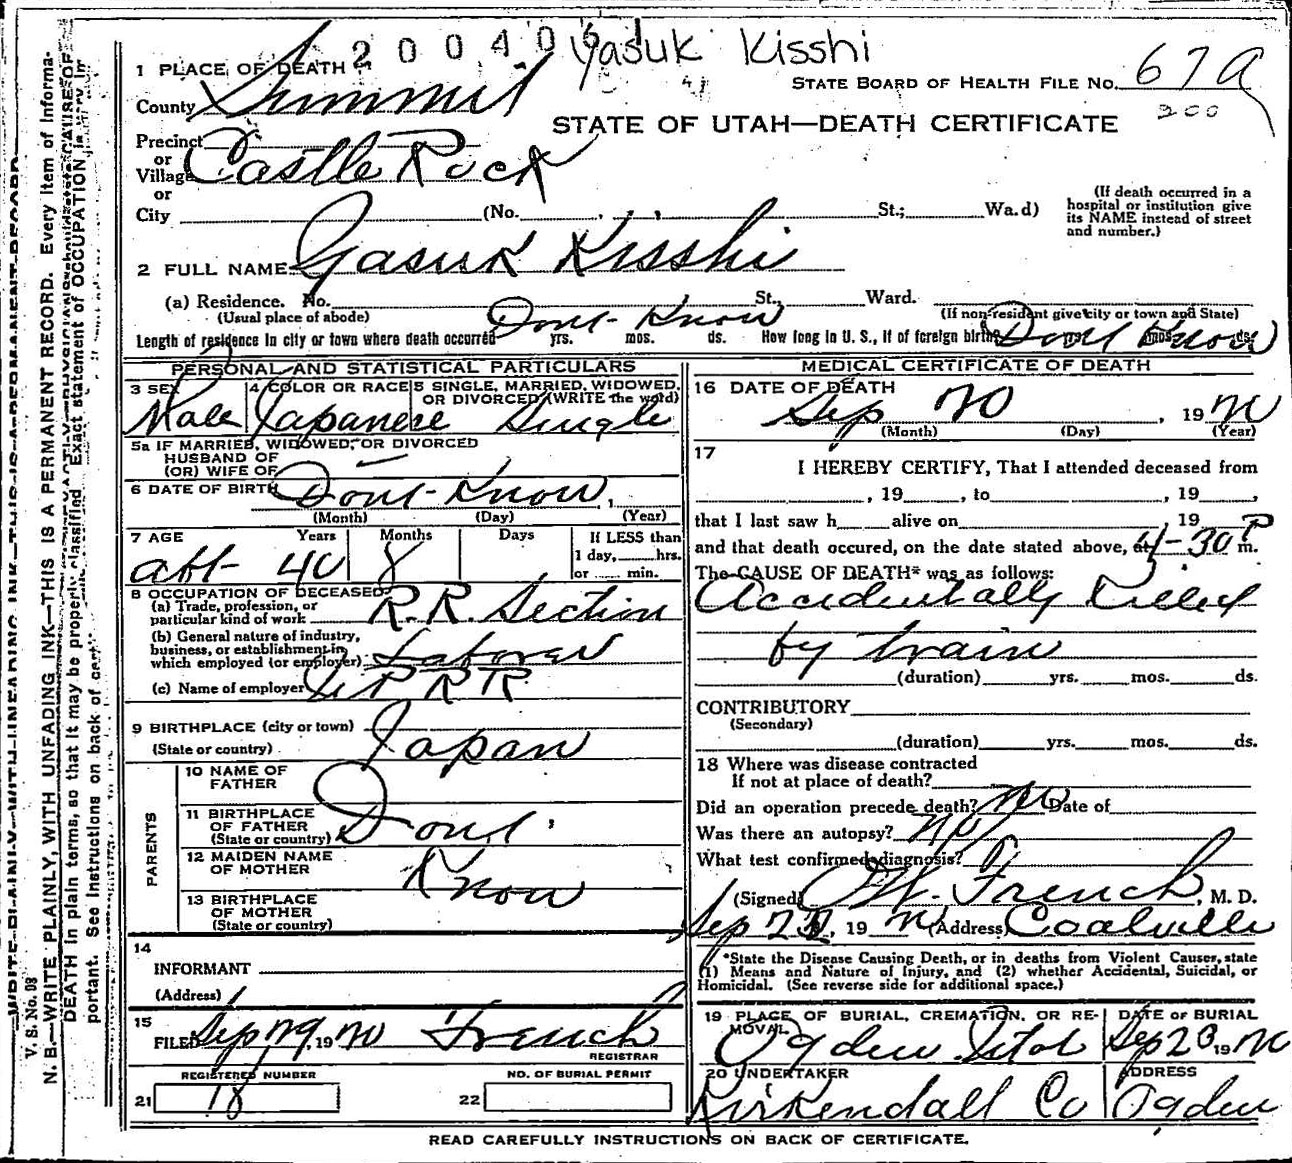 200405 Yasuk Kisshi
1 PLACE OF DEATH
STATE BOARD OF HEALTH FILE No. 67a
200
County Summit
STATE OF UTAH—DEATH CERTIFICATE
Precinct
or
Village Castle Rock
or
City (No. St.; Wa.d)
(If death occurred in a
hospital or institution give
its NAME instead of street
and number.)
2 FULL NAME Yasuk Kisshi
(a) Residence. No. St., Ward.
(Usual place of abode)
(If non-resident give city or town and State)
Length of residence in city or town where death occurred Dont Know yrs. mos. ds. How long in U. S., if of foreign birth? Dont Know yrs. mos. ds.
PERSONAL AND STATISTICAL PARTICULARS
3 SEX Male
4 COLOR OR RACE Japanese
5 SINGLE, MARRIED, WIDOWED,
OR DIVORCED (WRITE the word)
Single
5a IF MARRIED, WIDOWED, OR DIVORCED
HUSBAND OF
(OR) WIFE OF
6 DATE OF BIRTH Dont Know
(Month) (Day) (Year)
7 AGE Years Months Days
abt 40
If LESS than
1 day, hrs.
or min.
8 OCCUPATION OF DECEASED
(a) Trade, profession, or
particular kind of work R.R. Section
(b) General nature of industry,
business, or establishment in
which employed (or employer) Laborer
(c) Name of employer U P R R
9 BIRTHPLACE (city or town)
(State or country) Japan
PARENTS
10 NAME OF
FATHER
11 BIRTHPLACE
OF FATHER
(State or country) Dont
12 MAIDEN NAME
OF MOTHER Know
13 BIRTHPLACE
OF MOTHER
(State or country)
14
INFORMANT
(Address)
15
FILED Sep 29, 1920 French
REGISTRAR
REGISTERED NUMBER
21 18
NO. OF BURIAL PERMIT
22
MEDICAL CERTIFICATE OF DEATH
16 DATE OF DEATH
Sep 20, 1920
(Month) (Day) (Year)
17
I HEREBY CERTIFY, That I attended deceased from
, 19 , to , 19 ,
that I last saw h alive on , 19
and that death occured, on the date stated above, at 4-30 P m.
The CAUSE OF DEATH* was as follows:
Accidentally Killed
by train
(duration) yrs. mos. ds.
CONTRIBUTORY
(Secondary)
(duration) yrs. mos. ds.
18 Where was disease contracted
If not at place of death?
Did an operation precede death? no Date of
Was there an autopsy? no
What test confirmed diagnosis?
(Signed) French, M. D.
Sep, 1920 (Address) Coalville
*State the Disease Causing Death, or in deaths from Violent Causes, state
(1) Means and Nature of Injury, and (2) whether Accidental, Suicidal, or
Homicidal. (See reverse side for additional space.)
19 PLACE OF BURIAL, CREMATION, OR RE-
MOVAL
Ogden Utah
DATE OF BURIAL
Sep 23 1920
20 UNDERTAKER
Kirkendall Co
ADDRESS
Ogden
READ CAREFULLY INSTRUCTIONS ON BACK OF CERTIFICATE.
WRITE PLAINLY WITH UNFADING INK—THIS IS A PERMANENT RECORD
V. S. No. 98
N. B.—WRITE PLAINLY, WITH UNFADING INK—THIS IS A PERMANENT RECORD. Every item of informa-
DEATH in plain terms, so that it may be properly classified. Exact statement of OCCUPATION is very im-
portant. See instructions on back of certificate.